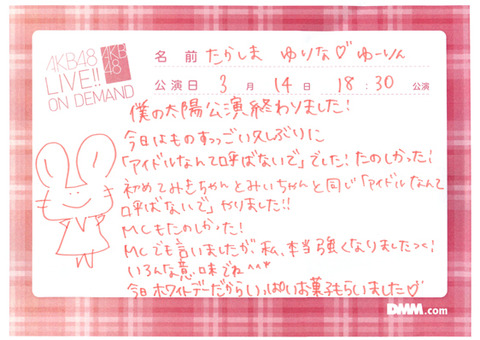 AKB48
LIVE!!
ON DEMAND
AKB
48
名 前 たかしま ゆりな♡ ゆーりん
公演日 3 月 14 日 18:30 公演
僕の太陽公演終わりました!
今日はものすっごい久しぶりに
「アイドルなんて呼ばないで」でした!たのしかった!
初めてみきちゃんとみいちゃんと同じ「アイドルなんて
呼ばないで」やりました!!
MCもたのしかった!
MCでも言いましたが、私、本当強くなりました><!
いろんな意味でね^^*
今日ホワイトデーだからいっぱいお菓子もらいました♡
DMM.com